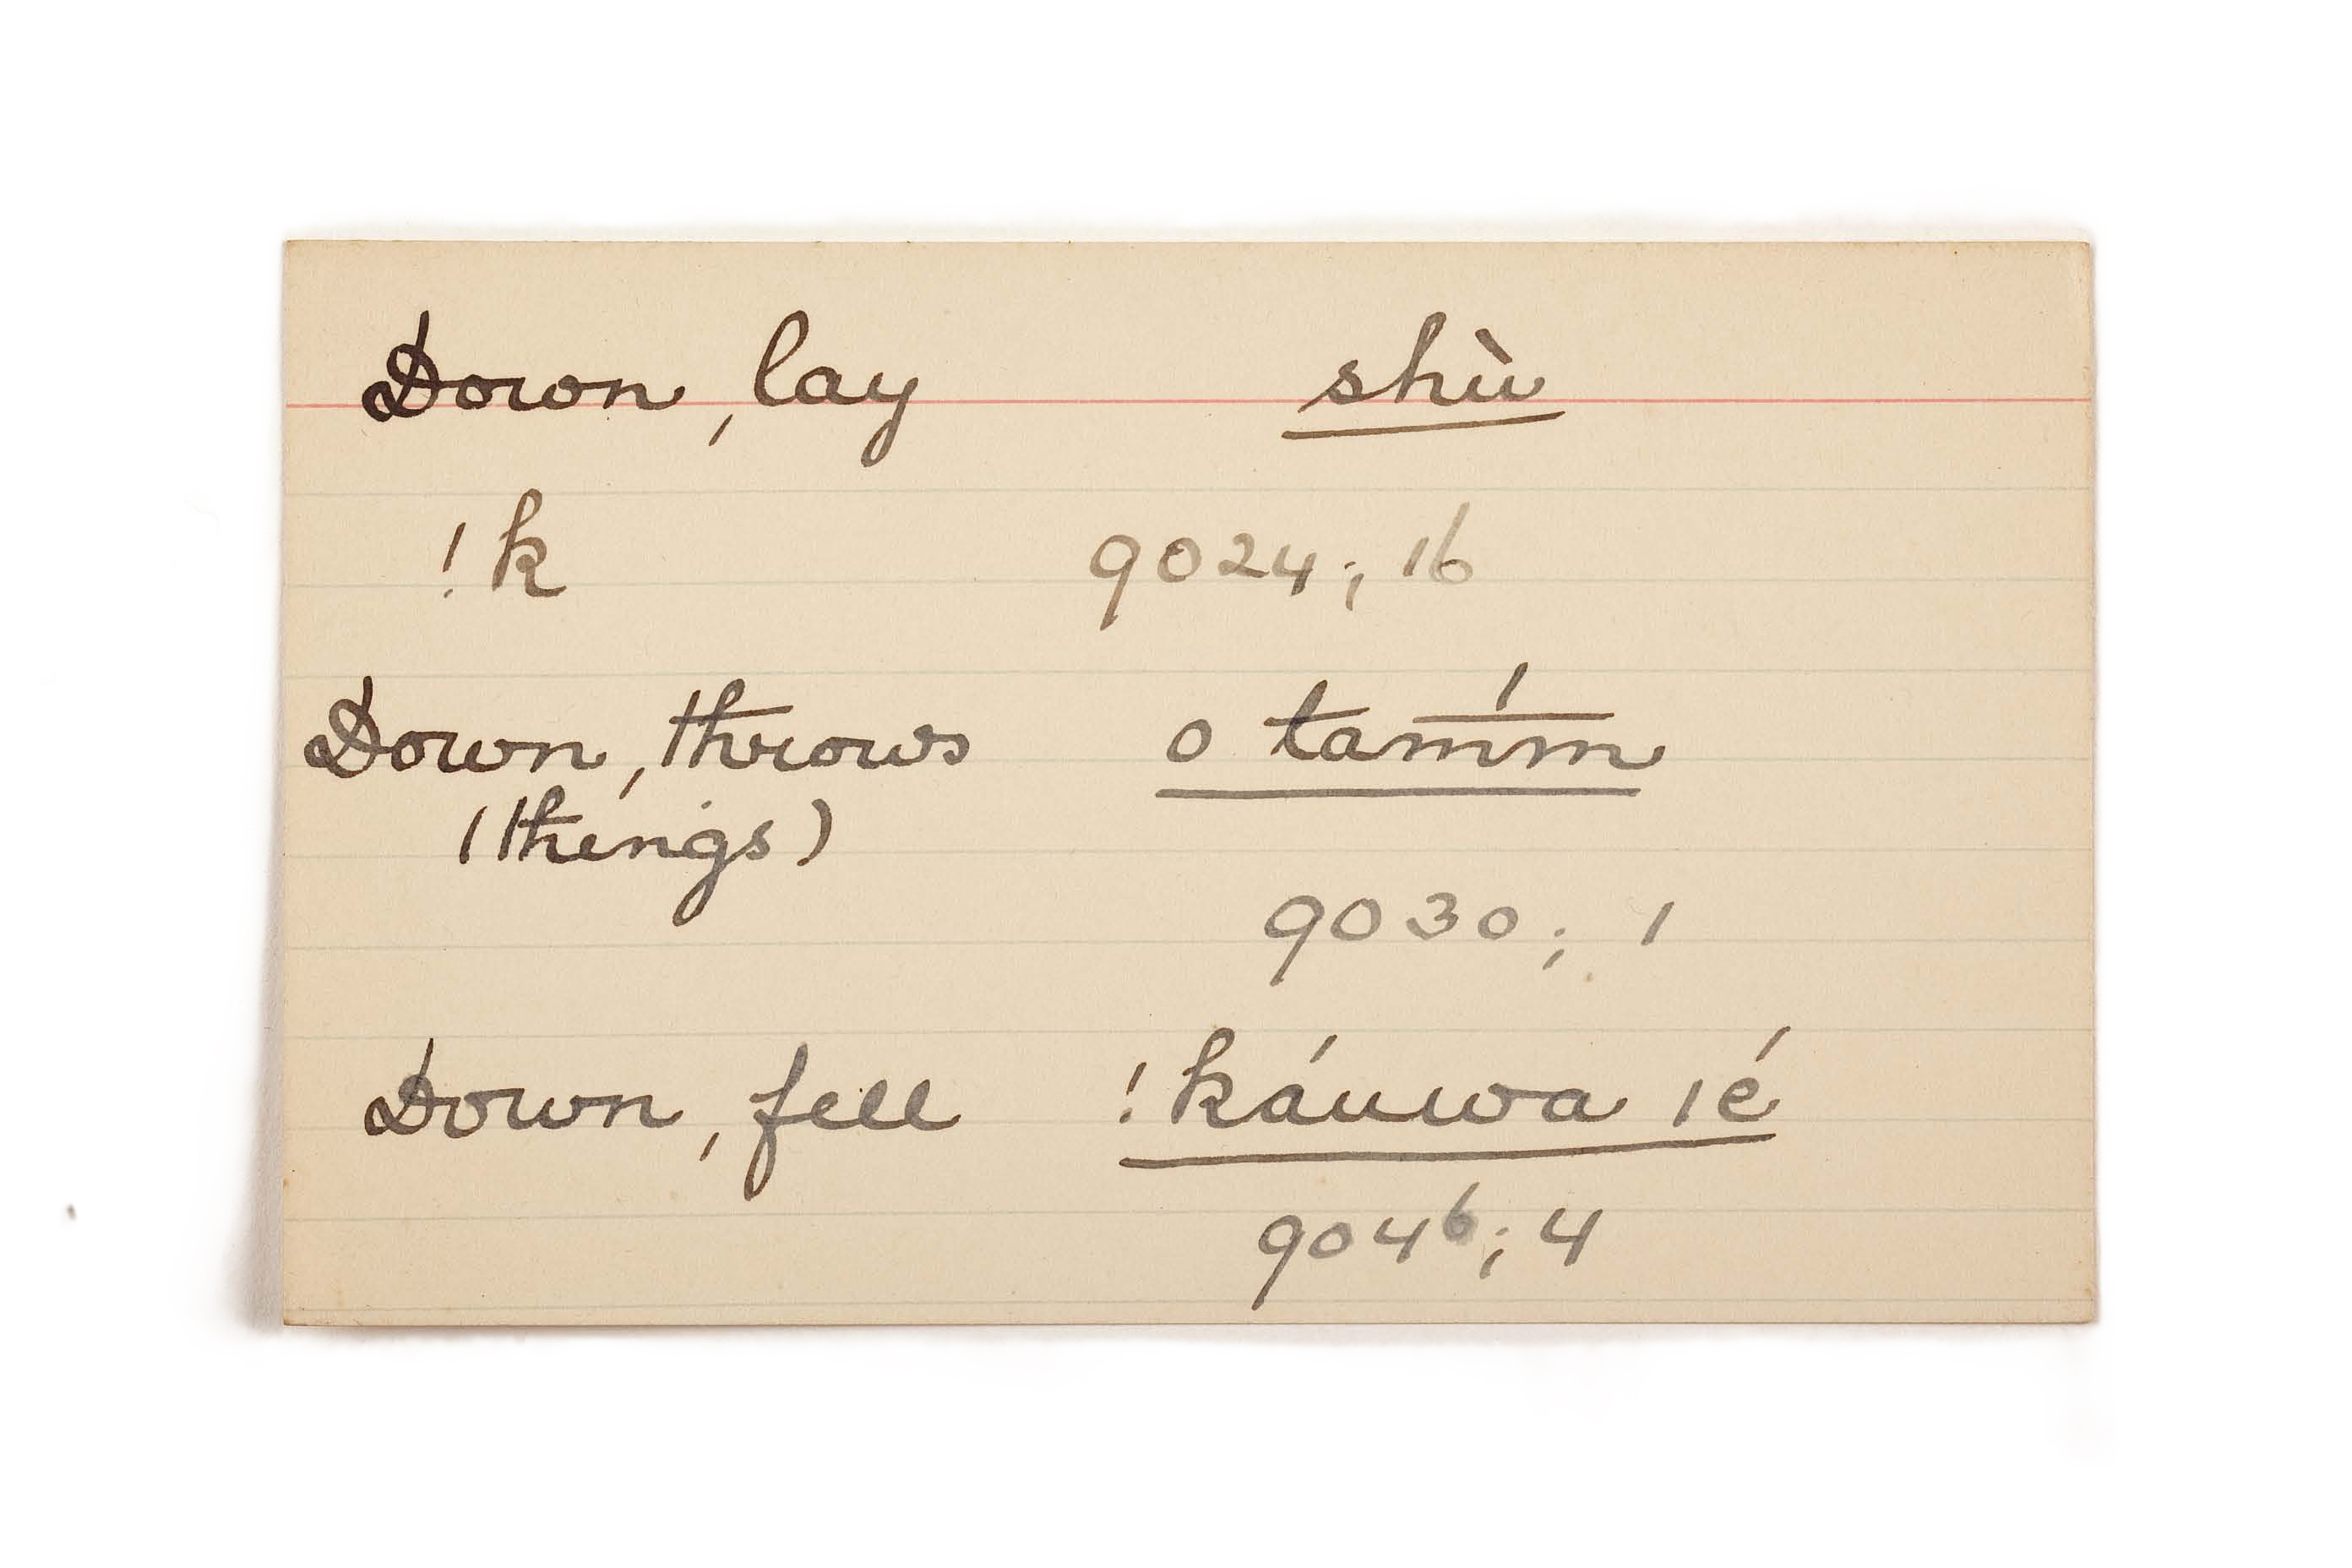 Down, lay shù
!k 9024; 16
Down, throws o tam̅́m̅
(things)
9030; 1
Down, fell !káuwa ıé
9046; 4